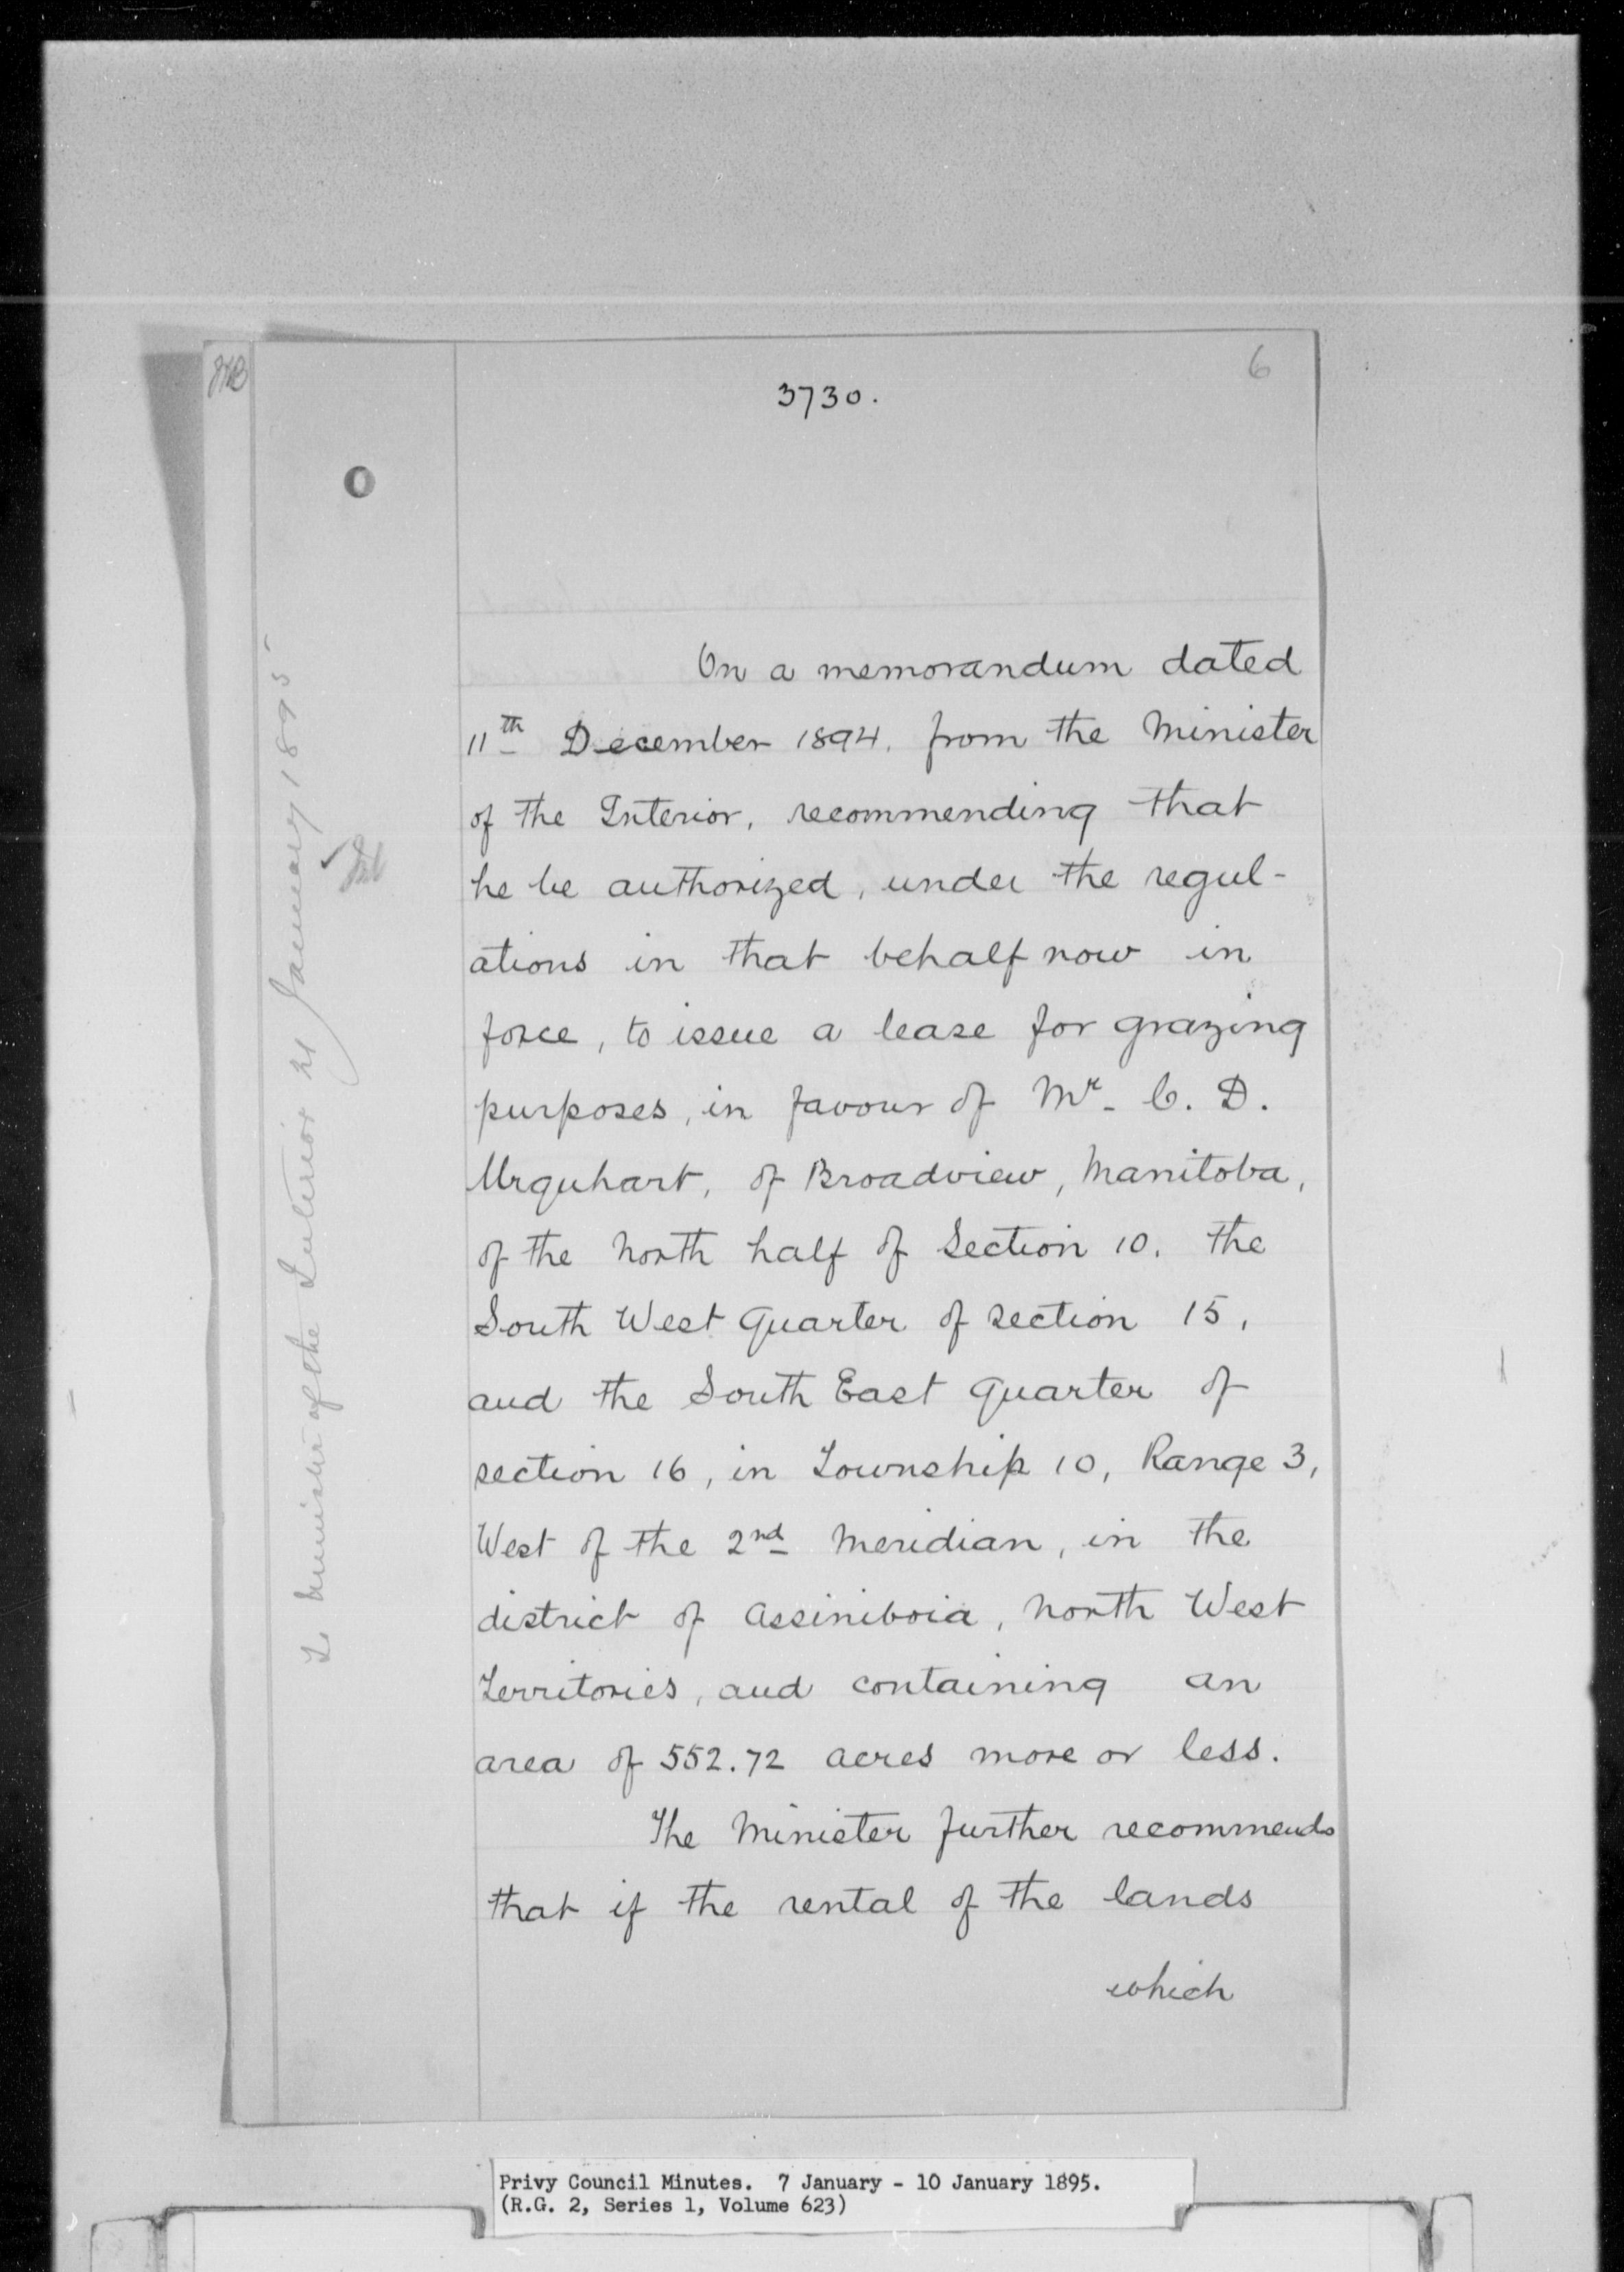 6
3730.
On a memorandum dated
11th December 1894. from the Minister
of the Interior, recommending that
he be authorized, under the regul-
ations in that behalf now in
force, to issue a lease for grazing
purposes, in favour of Mr. C. D.
Urquhart, of Broadview, Manitoba,
of the North half of Section 10. the
South West quarter of section 15,
and the South East quarter of
section 16, in Township 10, Range 3,
West of the 2nd Meridian, in the
district of Assiniboia, North West
Territories, and containing an
area of 552.72 acres more or less.
The Minister further recommends
that if the rental of the lands
which
Minister of the Interior 21 January 1895
Privy Council Minutes. 7 January - 10 January 1895.
(R.G. 2, Series 1, Volume 623)